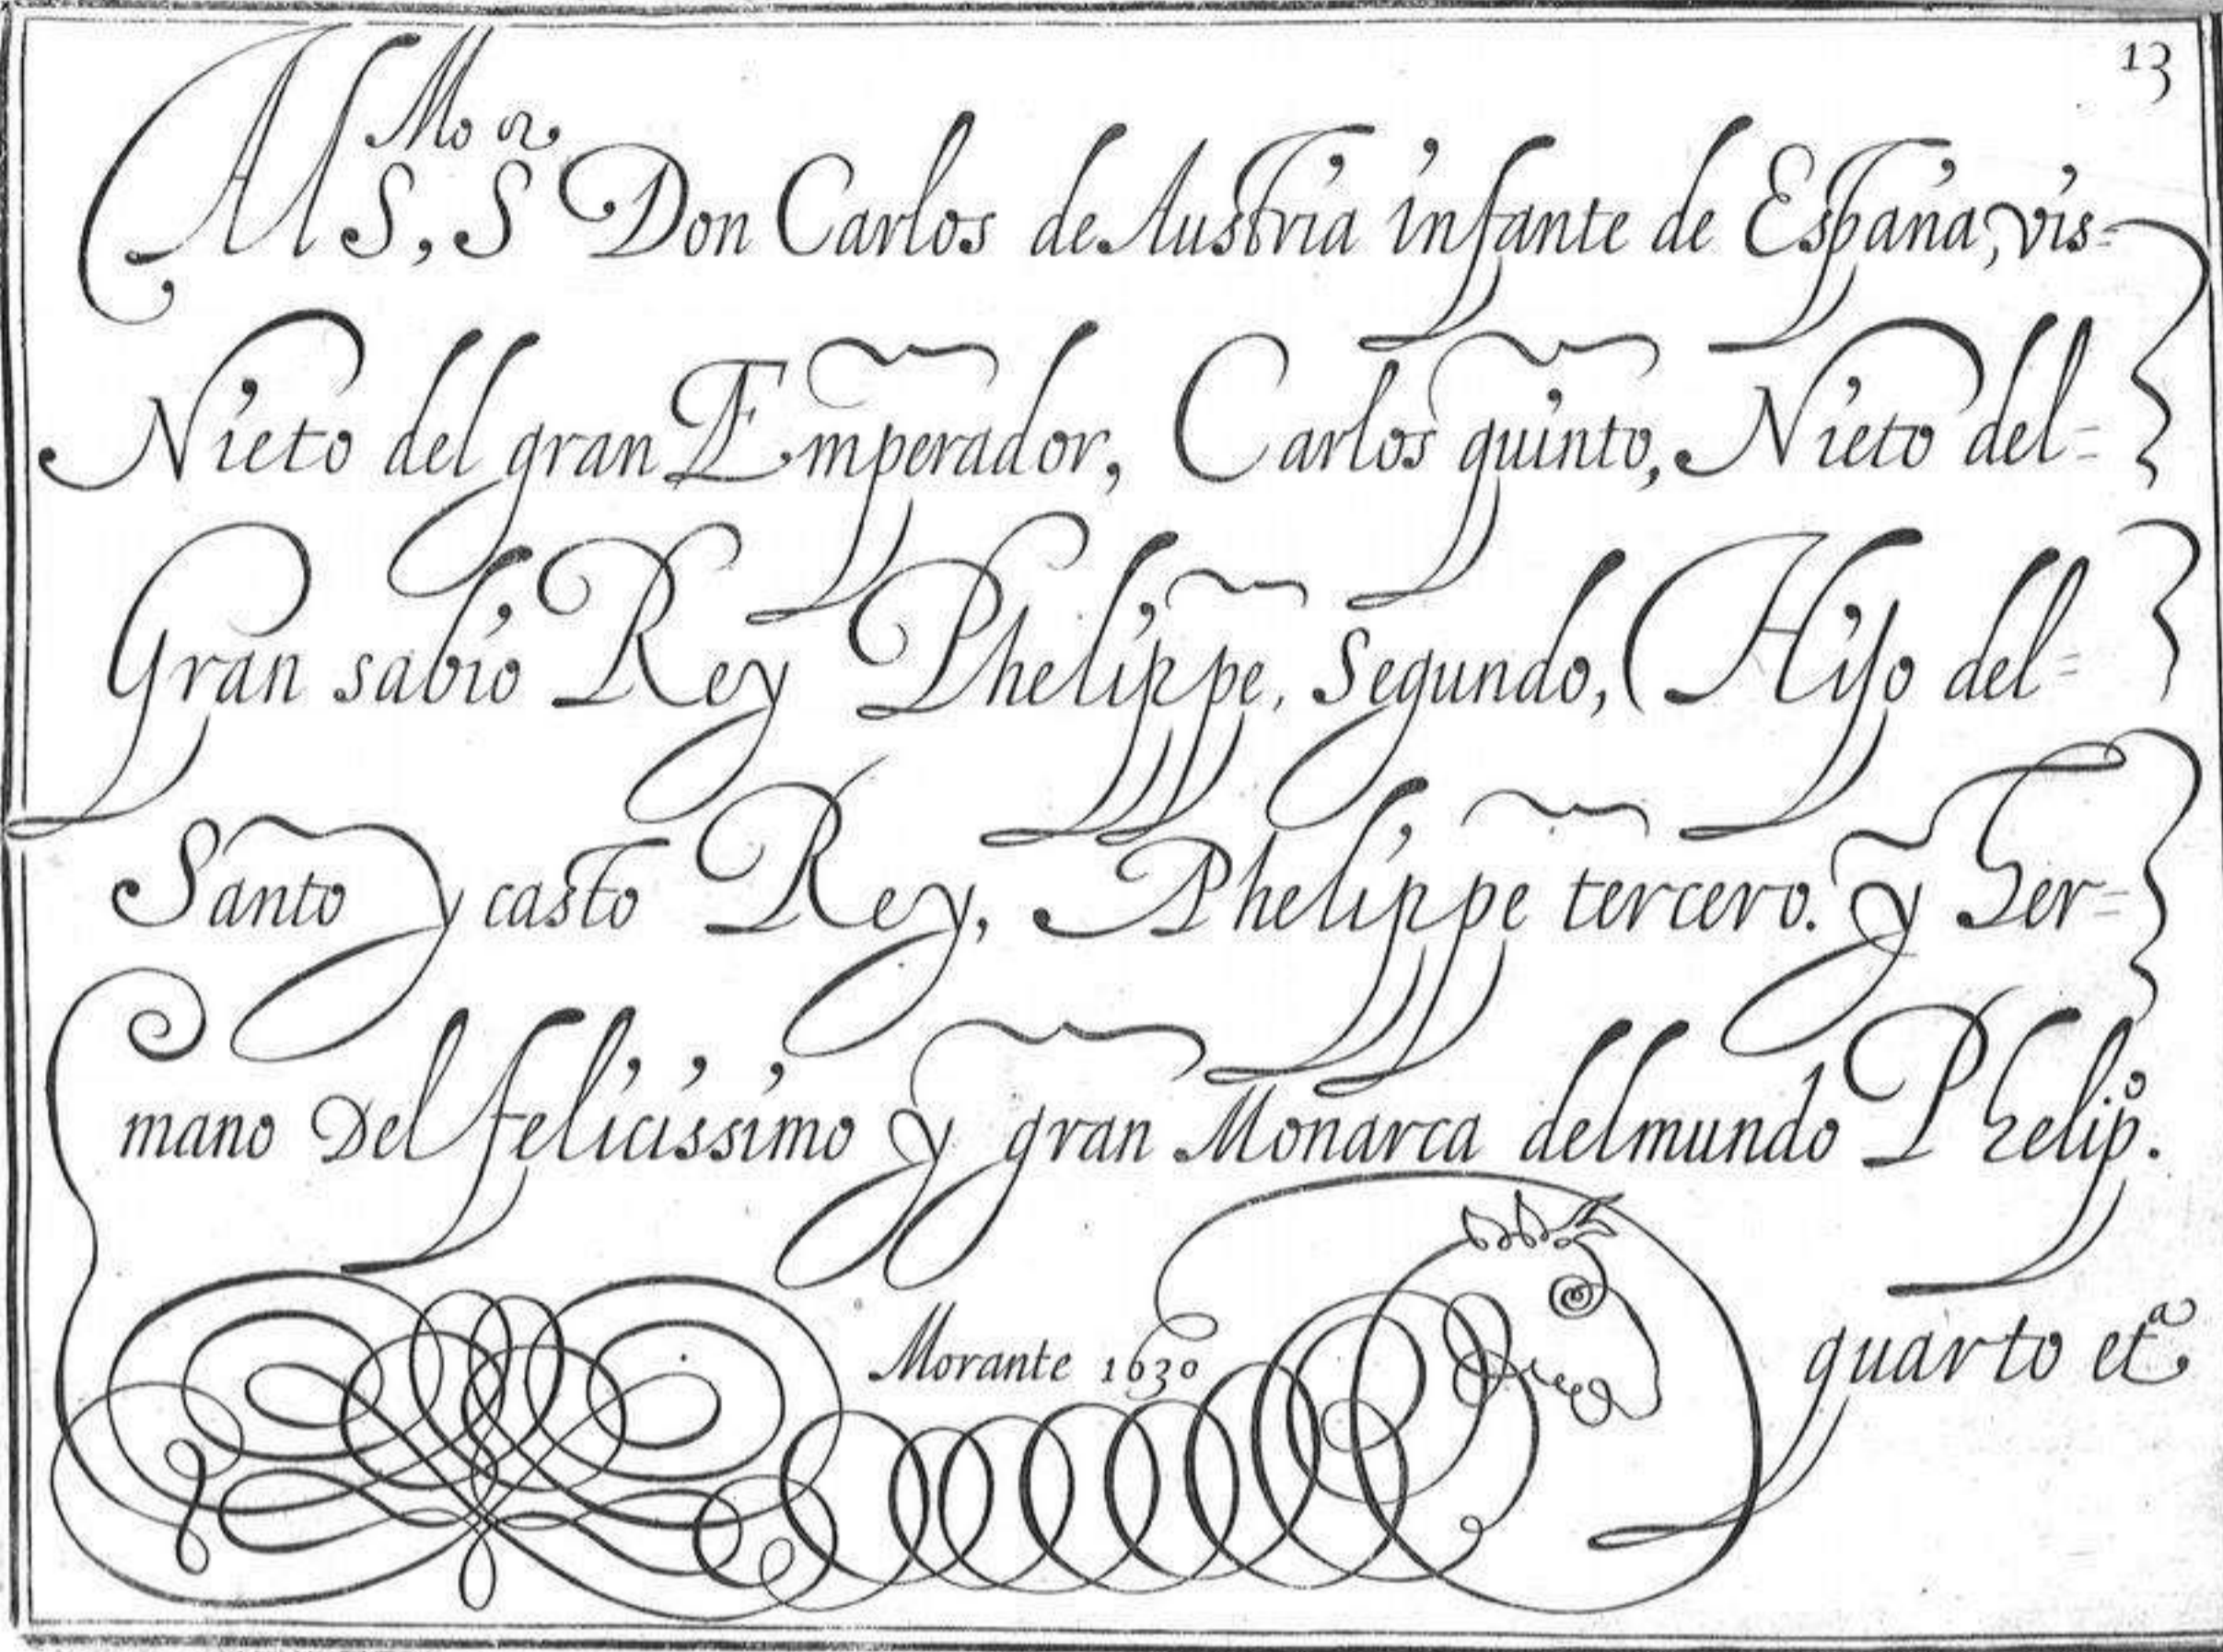 13
Al S.Mo, S.or Don Carlos de Austria infante de España, vis-
Nieto del gran Emperador, Carlos quinto, Nieto del=
Gran sabio Rey Phelippe, Segundo, Hijo del=
Santo y casto Rey, Phelippe tercero. y Her=
mano Del felicissimo y gran Monarca del mundo Phelipº.
quarto etª
Morante 1630